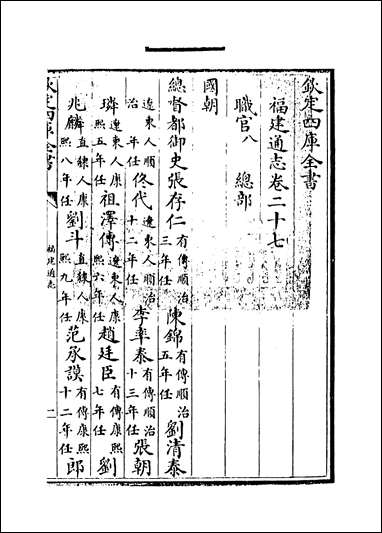 欽定四庫全書
福建通志卷二十七
職官八　總部
國朝
總督都御史張存仁有傳順治三年任陳錦有傳順治五年任劉清泰
遼東人順治　年任佟代遼東人順治十二年任李率泰有傳順治十三年任張朝
璘遼東人康熙五年任祖澤傳遼東人康熙六年任趙廷臣有傳康熙七年任劉
兆麟直隸人康熙八年任劉斗直隸人康熙九年任范承謨有傳康熙十二年任郎
欽定四庫全書
福建通志